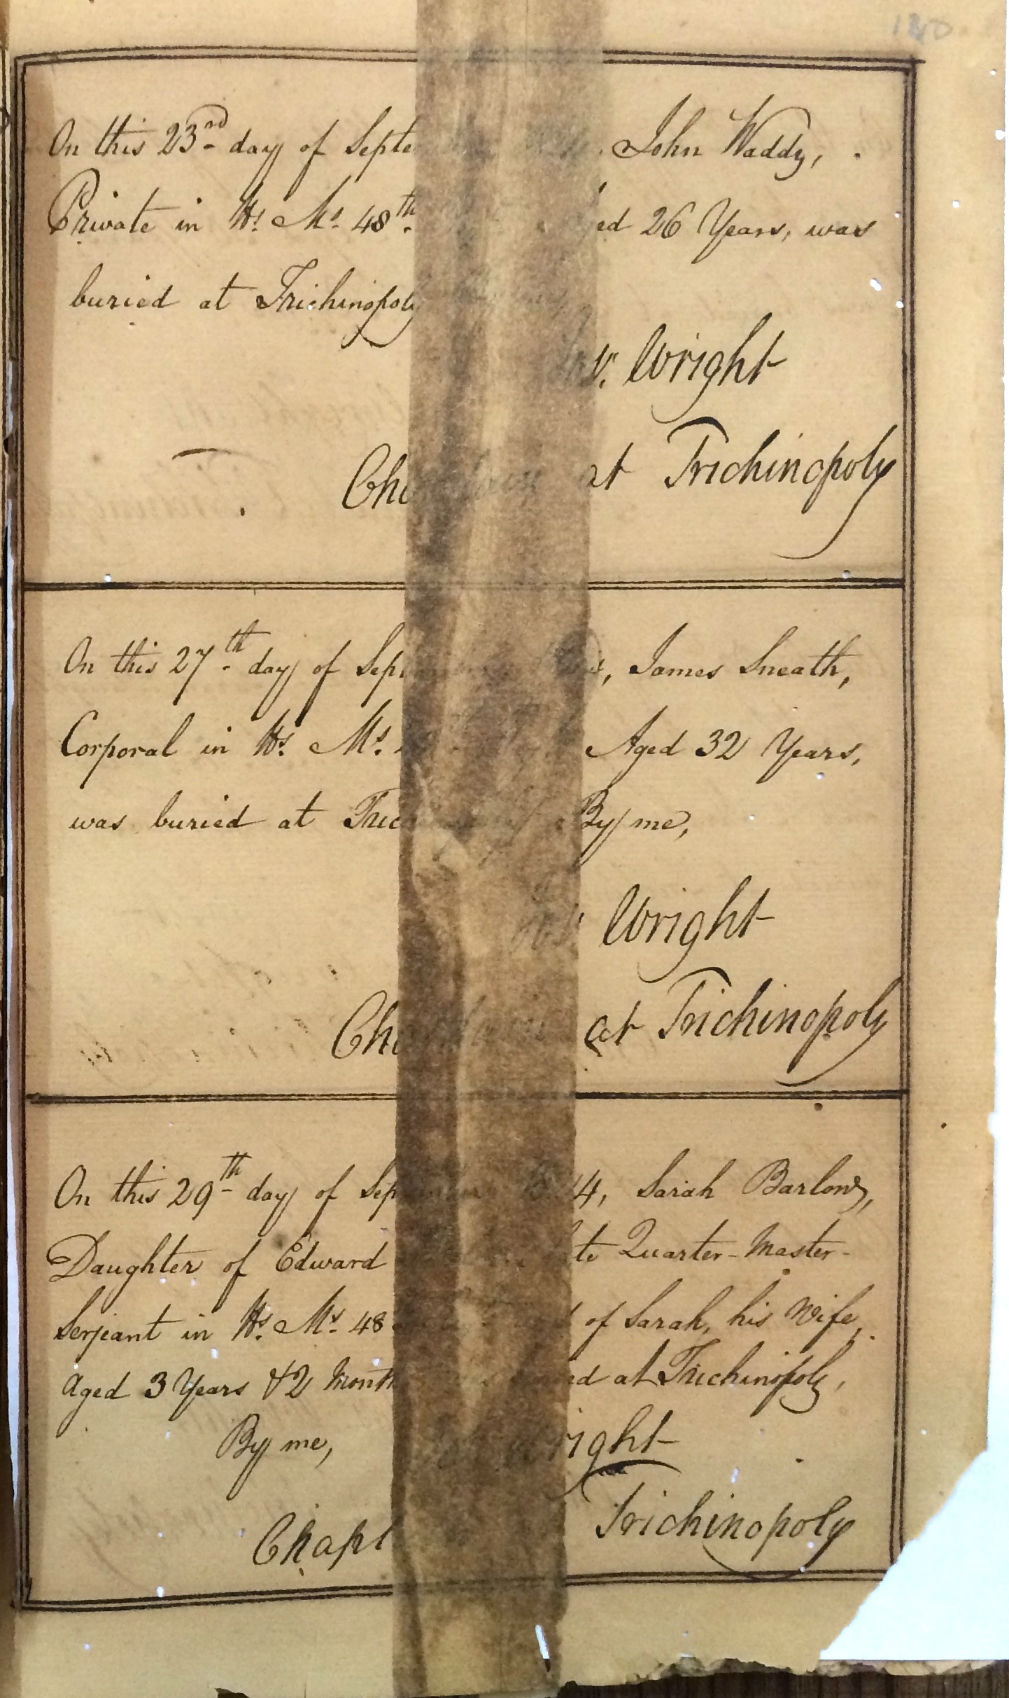 On this 23rd day of Septe John Waddy,
Private in Hs. Ms. 48th. ed 26 Years, was
buried at Trichinopoly
W. Wright
Cha at Trichinopoly
On this 27th day of Sept James Sneath,
Corporal in Hs. Ms. Aged 32 Years,
was buried at Tric By me,
Wright
Cha at Trichinopoly
On this 29th day of Sep 4, Sarah Barlow,
Daughter of Edward te Quarter-Master-
Serjeant in Hs. Ms. 48 of Sarah, his Wife,
Aged 3 Years & 2 Month ed at Trichinopoly,
By me, right
Chapl Trichinopoly